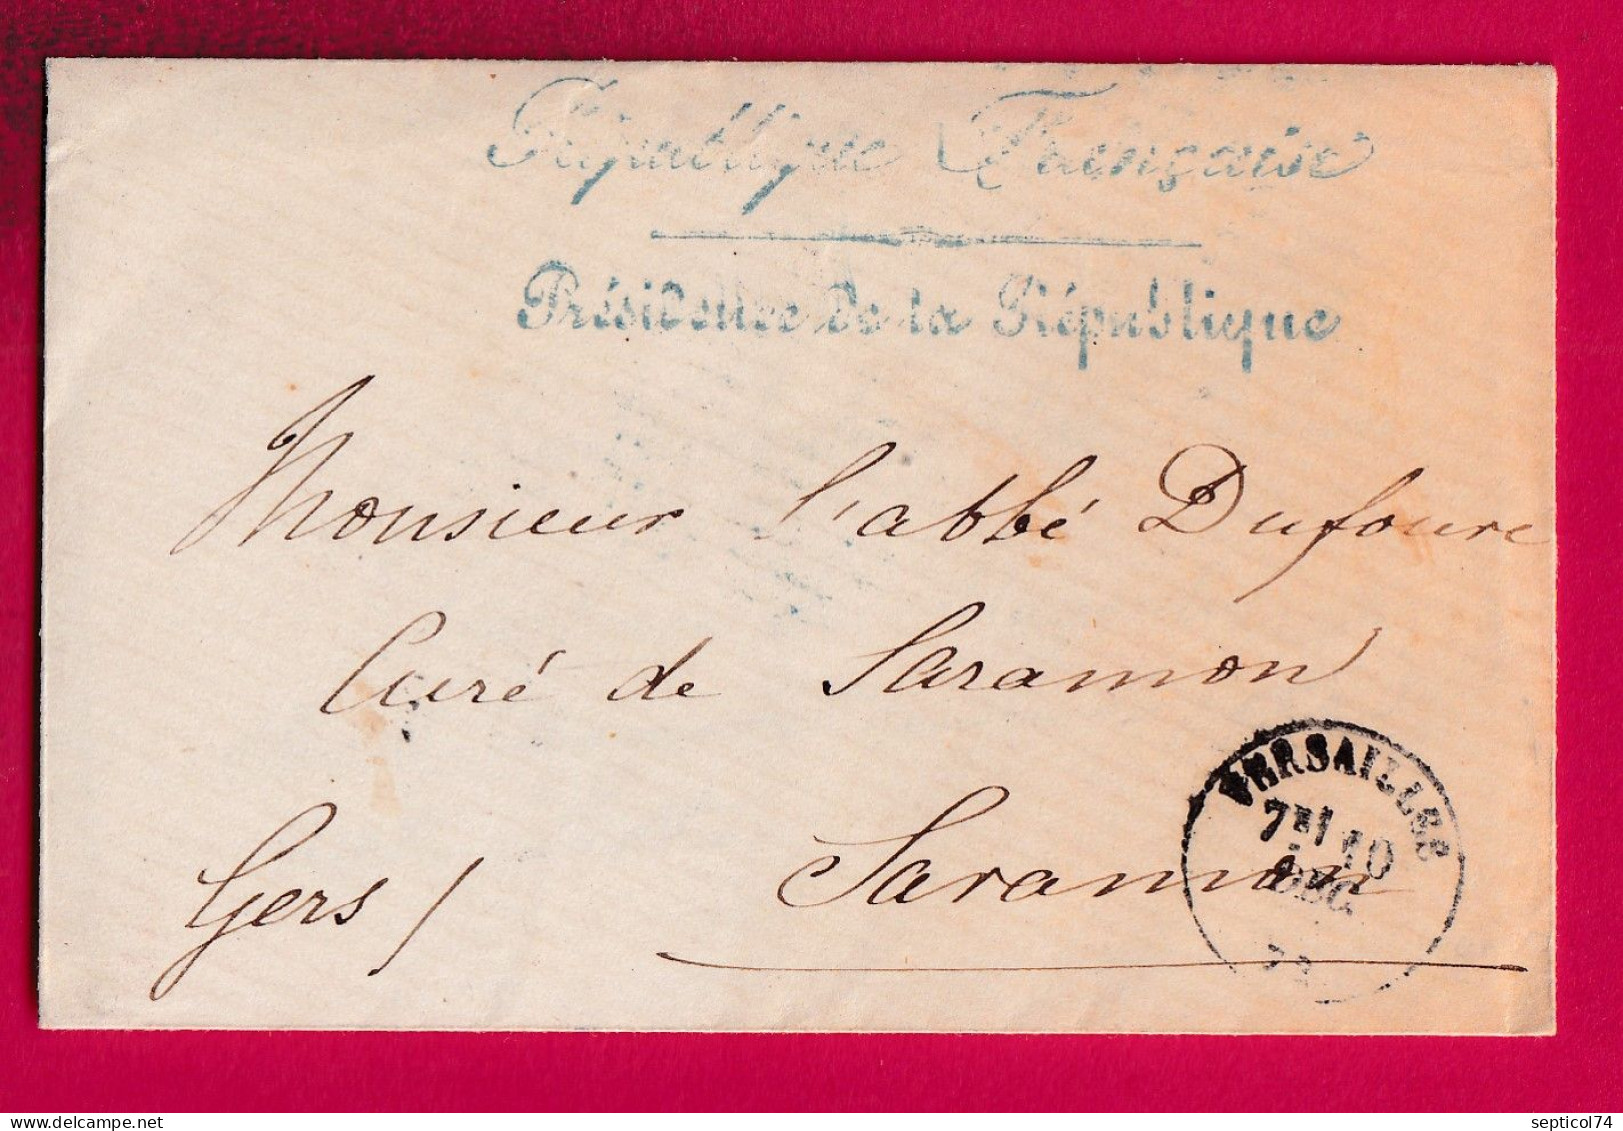 République Française
Présidence de la République
Monsieur l'abbé Dufourc
Curé de Saramon
Saramon
Gers /
VERSAILLES
7E 10
DEC.
delcampe.net
septicol74